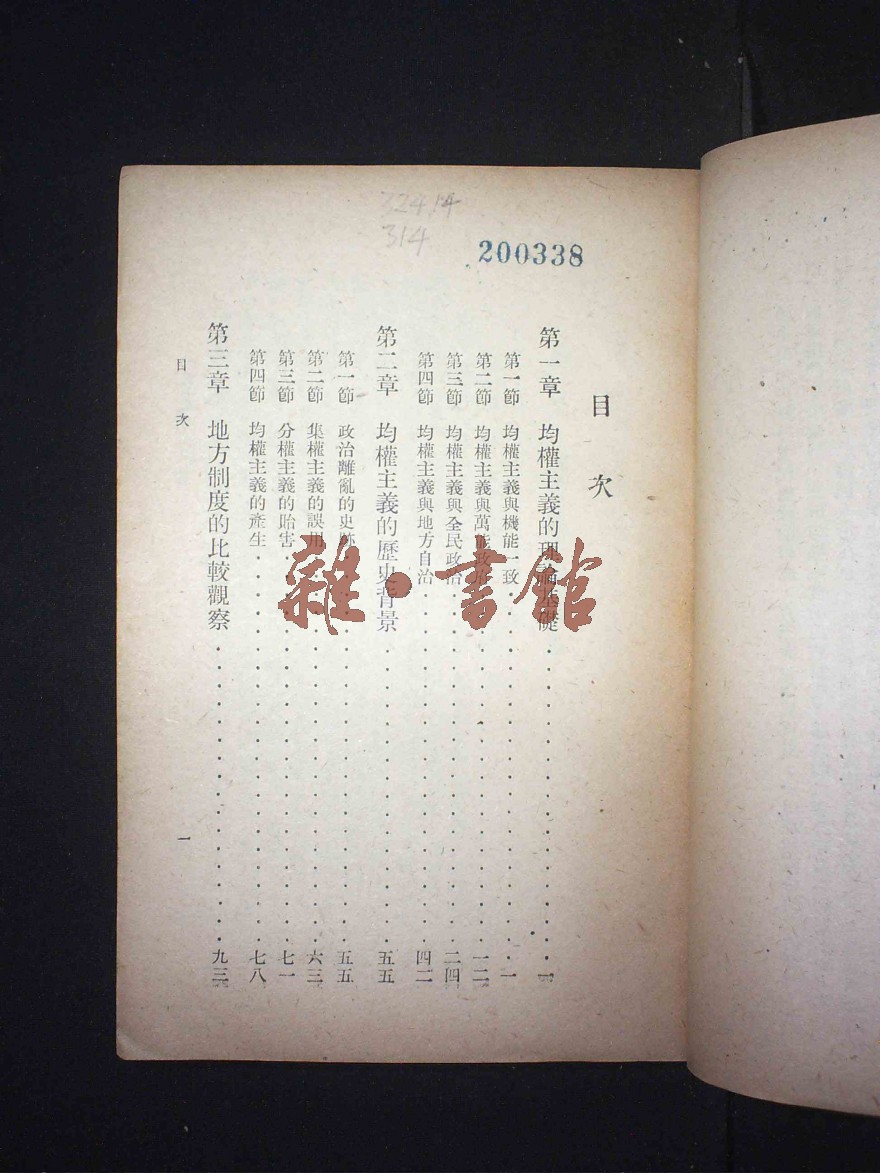 324.14
314
200338
目次
第一章 均權主義的理論基礎 一
第一節 均權主義與機能一致 一
第二節 均權主義與萬能政府 一二
第三節 均權主義與全民政治 二四
第四節 均權主義與地方自治 四二
第二章 均權主義的歷史背景 五五
第一節 政治離亂的史跡 五五
第二節 集權主義的誤用 六三
第三節 分權主義的貽害 七一
第四節 均權主義的產生 七八
第三章 地方制度的比較觀察 九三
目次 一
雜·書館